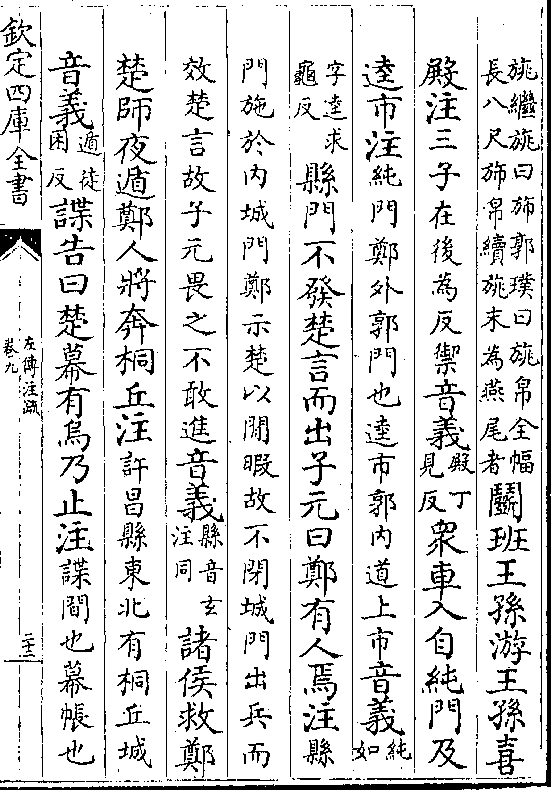 旐繼旐曰旆郭璞曰旐帛全幅
長八尺旆帛續旐末為燕尾者
鬭班王孫游王孫喜
殿注三子在後為反禦音義
殿丁
見反
衆車入自純門及
逵市注純門鄭外郭門也逵市郭内道上市音義
純如
字逵求
龜反
縣門不發楚言而出子元曰鄭有人焉注縣
門施於内城門鄭示楚以閒暇故不閉城門出兵而
效楚言故子元畏之不敢進音義
縣音玄
注同
諸侯救鄭
楚師夜遁鄭人將奔桐丘注許昌縣東北有桐丘城
音義
遁徒
困反
諜告曰楚幕有烏乃止注諜間也幕帳也
欽定四庫全書
左傳注疏
卷九
二十三